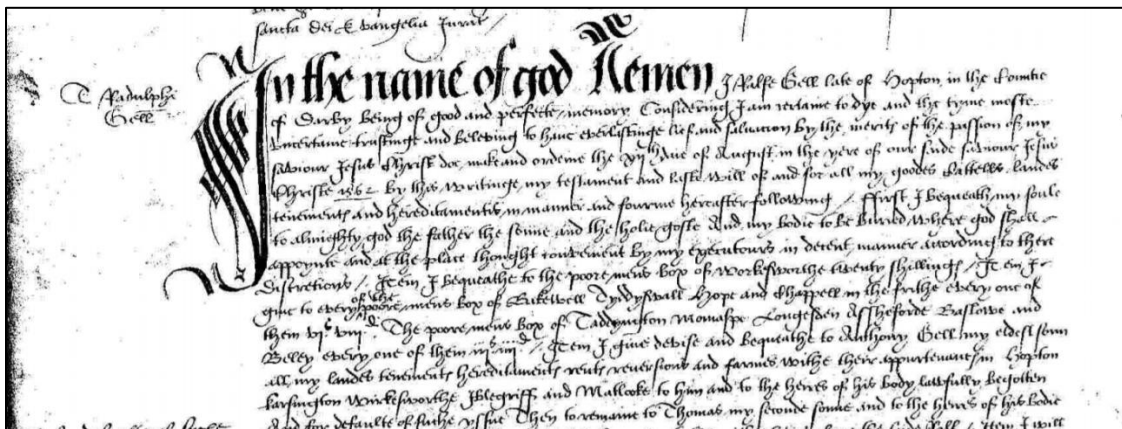 sancta dei Evangelia Jurat
T Radulphe
Gell
In the name of god Aemen J Ralfe Gell late of Hopton in the Countie
of Darby being of good and perfecte memory Considering I am certaine to dye and the tyme moste
Uncertaine trustinge and beleving to have everlastinge lief and salvacion by the merits of the passion of my
saviour Jesus Christ doe make and ordeine the day of August in the yere of our saide saviour Jesus
Christe by this writinge my testament and laste will of and for all my goodes Cattells landes
tenements and hereditaments in manner and fourme hereafter following / ffirst I bequeath my soule
to almighty god the father the sonne and the holie goste And my bodie to be buried where god shall
appoynte and at the place thought convenient by my executours in decent manner according to there
discretions / Item I bequeathe to the poore mens box of Workesworthe twenty shillings / Item I
give to every of the poore mens box of Bakewell Tyddyswall Hope and Chappell in the frithe every one of
them vis viiid The poore mens box of Taddyngton Longesdon Assheforde Baslowe and
Beley every one of them iiis iiiid / Item I give devise and bequeathe to Anthony Gell my eldest sonn
all my landes tenements hereditaments rents reversions and farmes withe their appurtenancs in Hopton
Carsington Wirkesworthe Iblegriff and Matlocke to him and to the heires of his body lawfully begotten
And for defaulte of suche yssue Then to remaine to Thomas my seconde sonne and to the heires of his bodie
Item I will